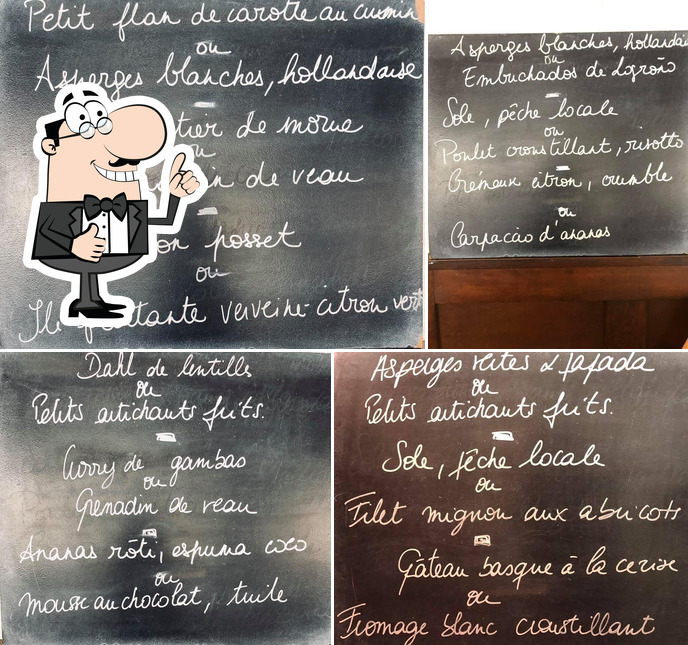 Petit flan de carotte au cumin
ou
Asperges blanches, hollandaise
tier de morue
u
in de veau
on posset
ou
Ile flottante verveine-citron vert
Asperges blanches, hollandai
ou
Embuchados de Logroño
Sole, pêche locale
ou
Poulet croustillant, risotto
Crémeux citron, crumble
ou
Carpacio d'ananas
Dahl de lentilles
ou
Petits artichauts frits.
Curry de gambas
ou
Grenadin de veau
Ananas rôti, espuma coco
ou
Mousse au chocolat, tuile
Asperges vertes & fafada
ou
Petits artichauts frits.
Sole, pêche locale
ou
Filet mignon aux abricots
Gâteau basque à la cerise
ou
Fromage blanc croustillant